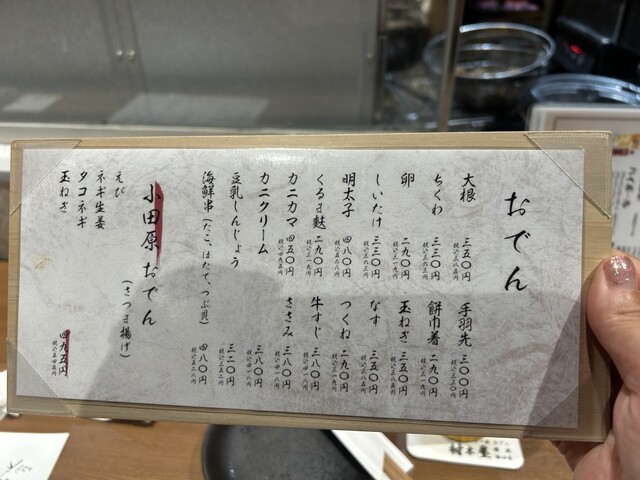 おでん
大根 三五〇円 税込三八五円
手羽先 三〇〇円 税込三三〇円
ちくわ 三三〇円 税込三六三円
餅巾着 二九〇円 税込三一九円
卵 二九〇円 税込三一九円
玉ねぎ 三五〇円 税込三八五円
しいたけ 三三〇円 税込三六三円
なす 三五〇円 税込三八五円
明太子 四八〇円 税込五二八円
つくね 二九〇円 税込三一九円
くるま麩 二九〇円 税込三一九円
牛すじ 三八〇円 税込四一八円
カニカマ 四五〇円 税込四九五円
ささみ 三八〇円 税込四一八円
カニクリーム 三八〇円 税込四一八円
豆乳しんじょう 三二〇円 税込三五二円
海鮮串(たこ、ほたて、つぶ貝) 四八〇円 税込五二八円
小田原おでん(さつま揚げ)
えび
ネギ生姜
タコネギ
玉ねぎ 四九五円 税込五四五円